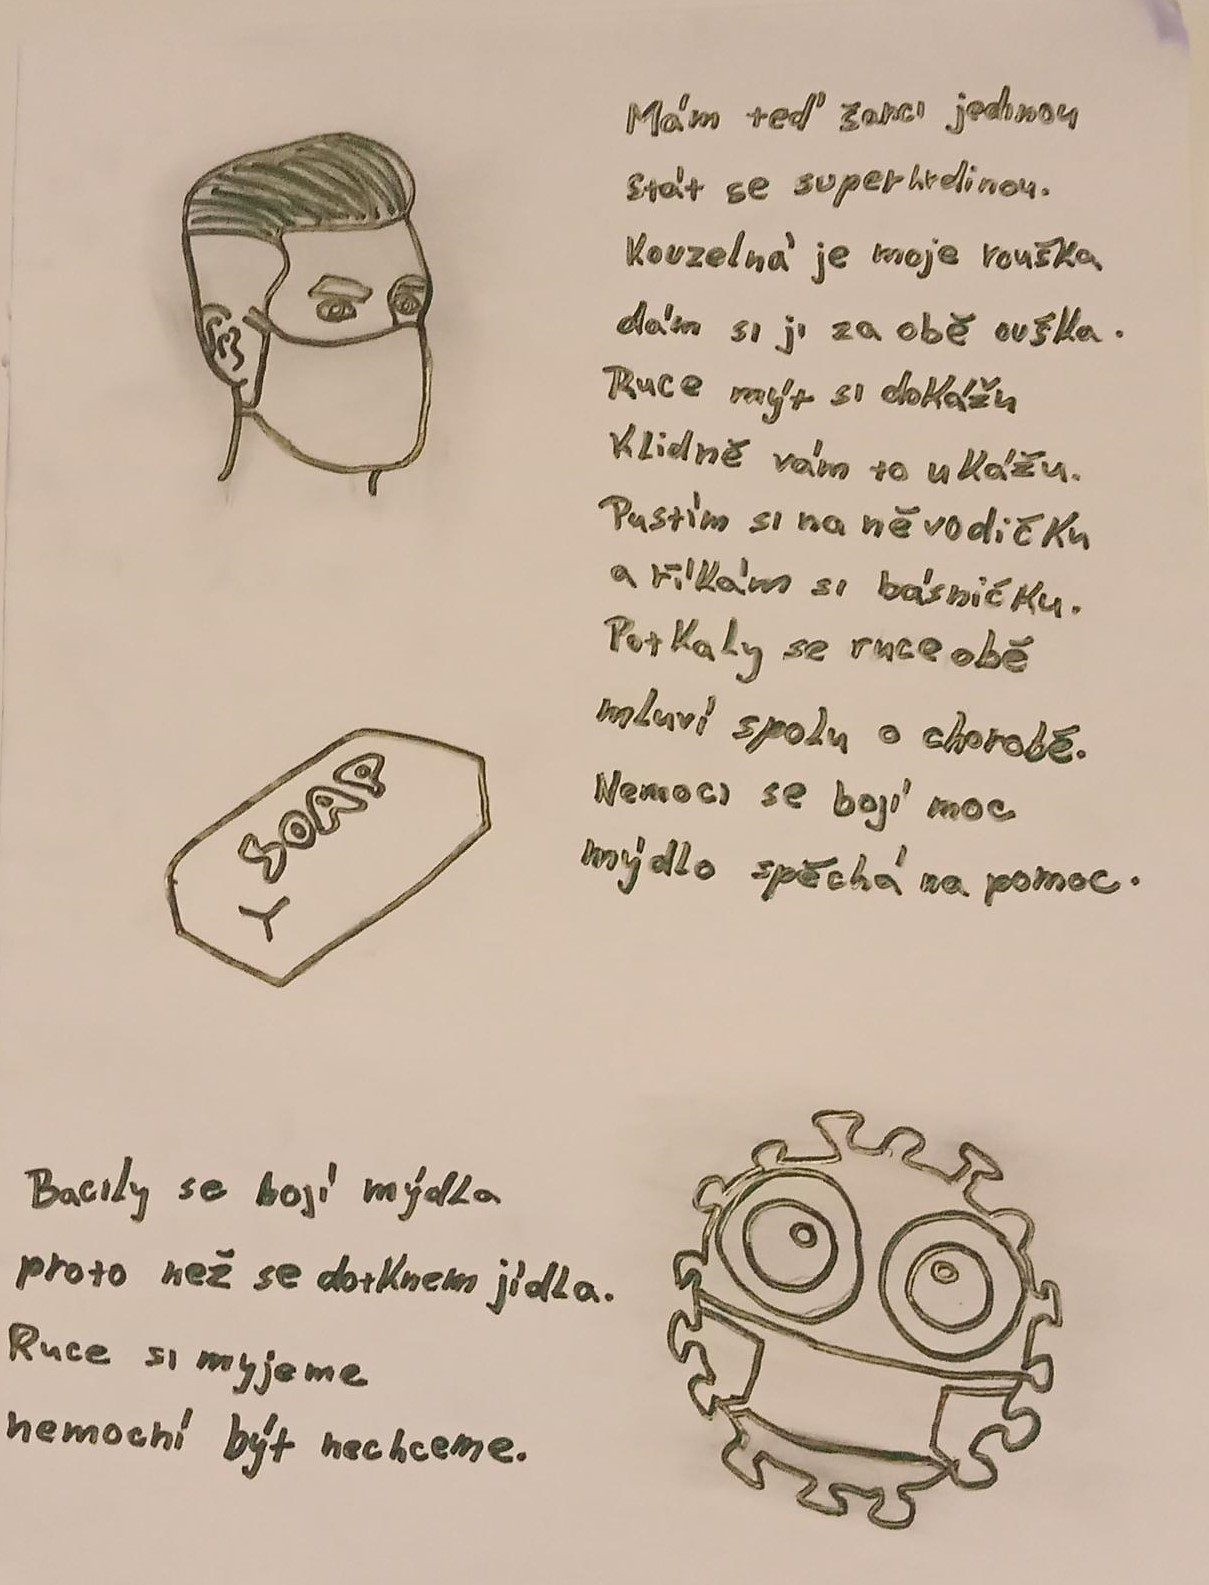 Mám teď šanci jedinou
stát se superhrdinou.
Kouzelná je moje rouška
dám si ji za obě ouška.
Ruce mýt si dokážu
Klidně vám to ukážu.
Pustím si na ně vodičku
a říkám si básničku.
Potkaly se ruce obě
mluví spolu o chorobě.
Nemoci se bojí moc
mýdlo spěchá na pomoc.
SOAP
Y
Bacily se bojí mýdla
proto než se dotknem jídla.
Ruce si myjeme
nemocní být nechceme.